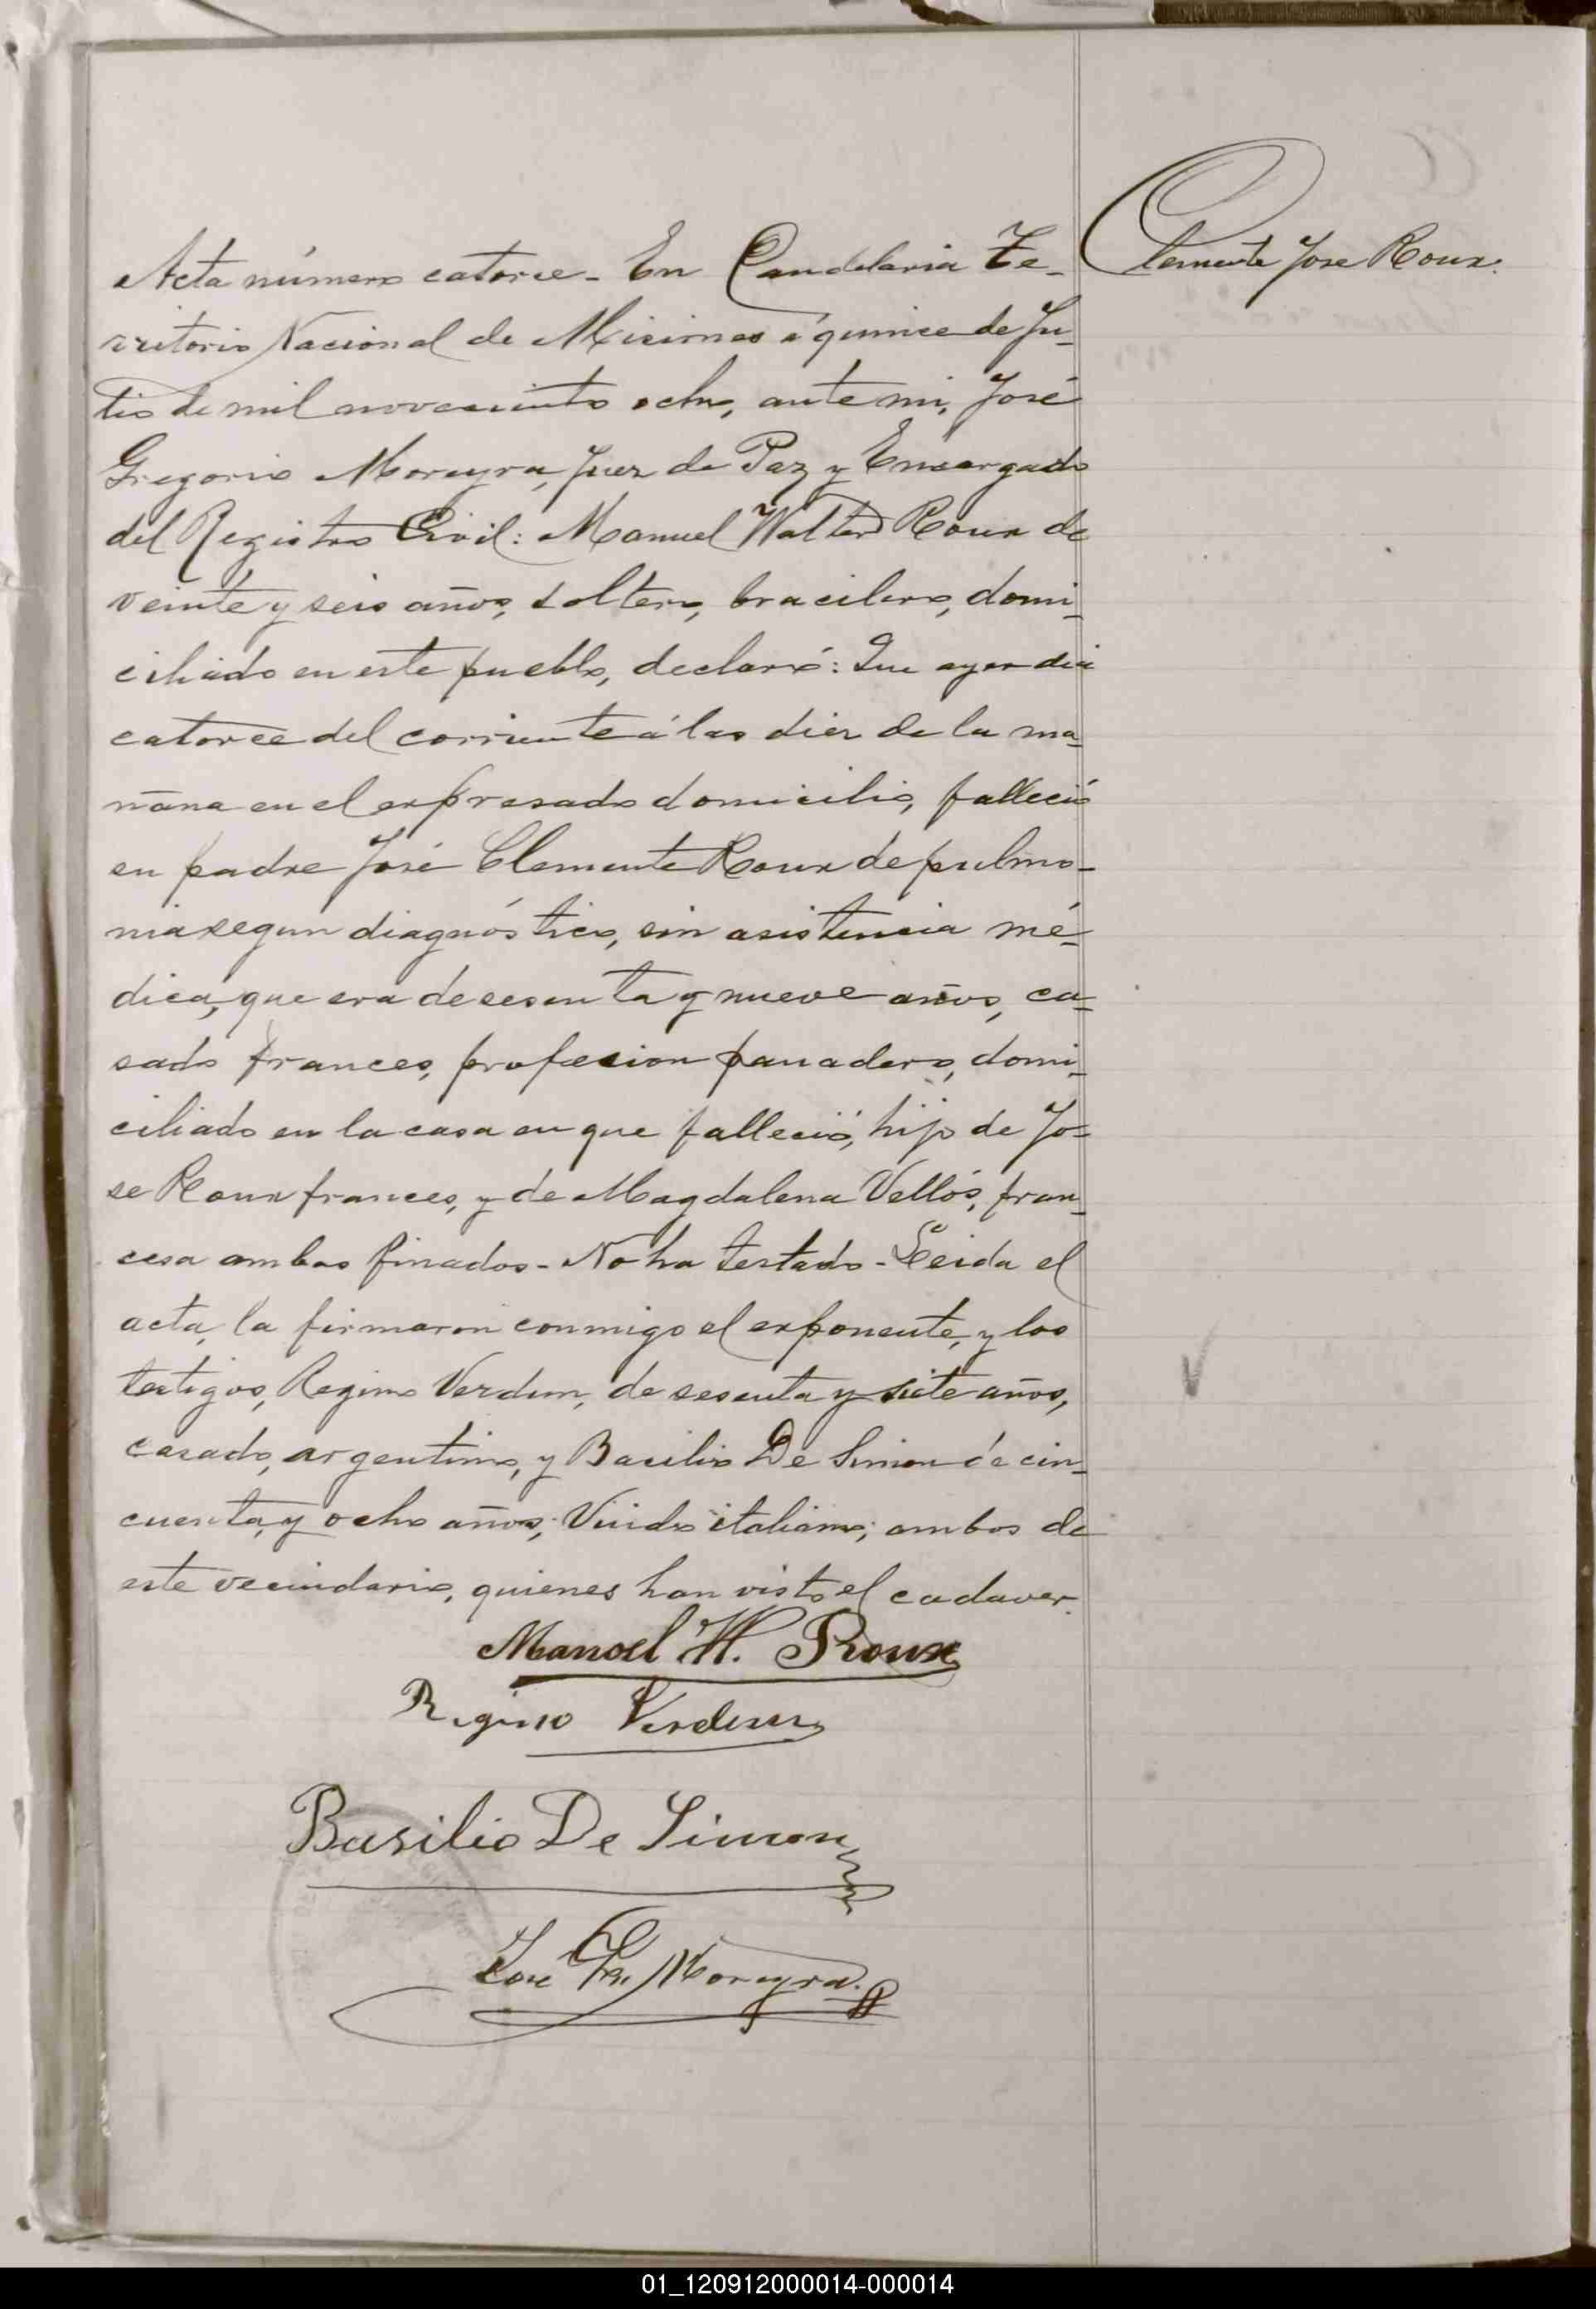 Clemente Jose Roux.
Acta número catorce - En Candelaria Te-
rritorio Nacional de Misiones á quince de Ju-
lio de mil novecientos ocho, ante mi, José
Gregorio Moreyra, Juez de Paz y Encargado
del Registro Civil: Manuel Walter Roux de
veinte y seis años, soltero, bracilero, domi-
ciliado en este pueblo, declaró: Que ayer dia
catorce del corriente á las diez de la ma-
ñana en el expresado domicilio, falleció
su padre José Clemente Roux de pulmo-
nia segun diagnóstico, sin asistencia mé-
dica, que era de sesenta y nueve años, ca-
sado frances, profesion panadero, domi-
ciliado en la casa en que falleció, hijo de Jo-
se Roux frances, y de Magdalena Vellós, fran-
cesa ambos finados - No ha testado - Leida el
acta, la firmaron conmigo el exponente, y los
testigos, Regino Verdun, de sesenta y siete años,
casado, argentino, y Bacilio De Simon de cin-
cuenta y ocho años, Viudo italiano; ambos de
este vecindario, quienes han visto el cadaver.
Manoel W. Roux
Regino Verdun
Basilio De Simon
José Gre Moreyra.
01_120912000014-000014